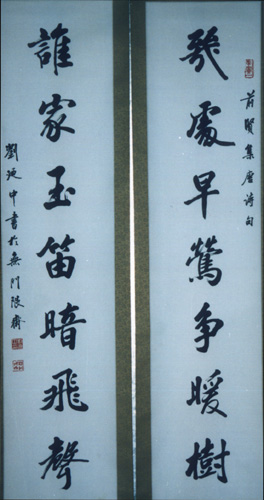 幾處早鶯争暖樹
前賢集唐诗句
誰家玉笛暗飛聲
劉延中書於無門限齋